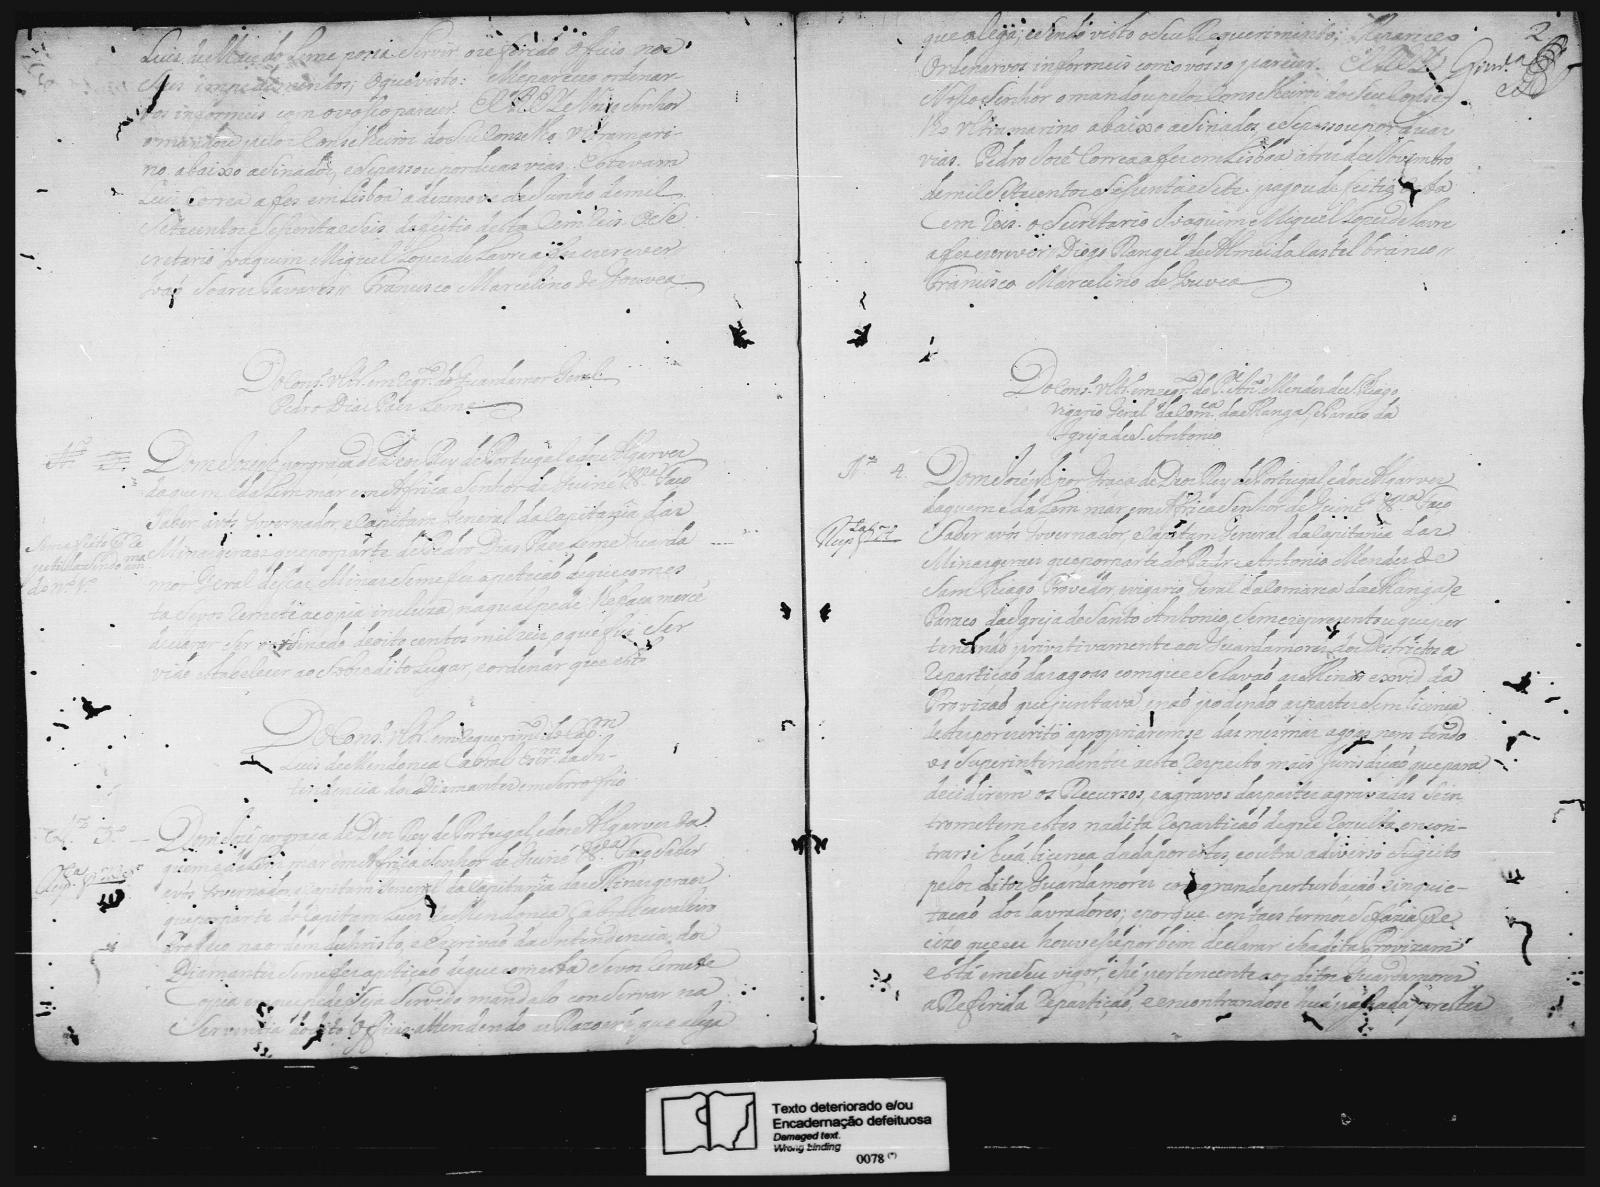 Luis de Macedo Leme possa servir o referido Officio nos
seus impedimentos; o que visto: Me pareceo ordenar-
vos informeis com o vosso parecer. ElRey Nosso Senhor
o mandou pelos Conselheiros do seu Conselho Ultramari-
no abaixo asinados, e se passou por duas vias. Estevam
Luis Correa a fes em Lisboa a dezenove de Junho de mil
setecentos e sesenta e seis de feitio desta Cem reis. O Se
cretario Joaquim Miguel Lopes de Lavre a fes escrever
Joaõ Soares Tavares // Francisco Marcelino de Gouvea
Do Cons.º Ultr. em reqr.to do Guardamor Geral
Pedro Dias Paes Leme
Dom Joseph por graça de Deos Rey de Portugal e dos Algarves
daquem e dalem mar em Africa Senhor de Guiné &.ª Faço
saber a vós Governador, e Capitam General da Capitania das
Minas geraes que por parte de Pedro Dias Paes Leme Guarda
mor Geral dessas Minas se me fes a petiçaõ de que com es
ta se vos remete a copia incluza na qual pede lhe faça mercê
declarar ser o ordinado de oito centos mil reis, o que fui ser
vido estabelecer ao sobredito Lugar, e ordenar que esto
Do Cons.º Ultr. em requerim.to do Cap.m
Luis de Mendonca Cabral Escr.m da In-
tendencia dos Diamantes em Serro frio
N.º 3.º
Dom José por graça de Deos Rey de Portugal, e dos Algarves da
quem e dalem mar em Africa Senhor de Guiné &.ª Faço saber
a vós Governador, e Capitam General da Capitania das Minas geraes
que por parte do Capitam Luis de Mendonca Cabral Cavaleiro
Professo na ordem de Christo, e Escrivaõ da Intendencia dos
Diamantes se me fes a petiçaõ de que com esta se vos remete
Copia em que pede seja servido mandalo conservar na
serventia do dito Officio attendendo as Razoens que alega
2
que alega; e sendo visto o seu Requerimento; Me pareceo
Ordenarvos informeis com o vosso parecer. ElRey
Nosso Senhor o mandou pelos Conselheiros do seu Conse-
lho Ultramarino abaixo asinados, e se passou por duas
vias. Pedro José Correa a fes em Lisboa a tres de Novembro
de mil e setecentos e sesenta e sete pagou de feitio desta
Cem reis. o Secretario Joaquim Miguel Lopes de Lavre
a fes escrever // Diogo Rangel de Almeida Castel branco //
Francisco Marcelino de Gouvea
Do Cons.º Ultr. em reqr.to do P.e An.to Mendes de S.Tiago
Vigario Geral da Com.ca da Manga, e Paroco da
Igreja de S. Antonio
N.º 4.
Dom José por Graça de Deos Rey de Portugal, e dos Algarves
daquem e dalem mar em Africa Senhor de Guiné &.ª Faço
Saber a vós Governador, e Capitam General da Capitania das
Minas geraes que por parte do Padre Antonio Mendes de
Sam Tiago Provedor, vigario Geral da Comarca da Manga, e
Paroco da Igreja de Santo Antonio, se me representou que per
tencendo privitivamente aos Guardamores dos Destrictos a
repartiçaõ das agoas com que se lavaõ as Minas exvi da
Provizaõ que juntava, e naõ podendo as partes sem licença
destes por escrito apropriaremse das mesmas agoas nem tendo
os Superintendentes a este respeito mais jurisdiçaõ que para
decidirem os Recursos, e agravos das partes agravadas se in
trometem estes na dita repartiçaõ de que resulta encon-
trarse huã licença dada por estes, e outra a diverso sugeito
pelos ditos Guardamores com grande perturbaçaõ e inquie-
taçaõ dos lavradores; e porque em taes termos se fazia Pre
cizo que eu houvese por bem declarar se a dita Provizam
está em seu vigor, e hé pertencente aos ditos Guardamores
a Referida repartiçaõ, e encontrandose huã passada por estes
Texto deteriorado e/ou
Encadernação defeituosa
Damaged text.
Wrong binding
0078 (*)